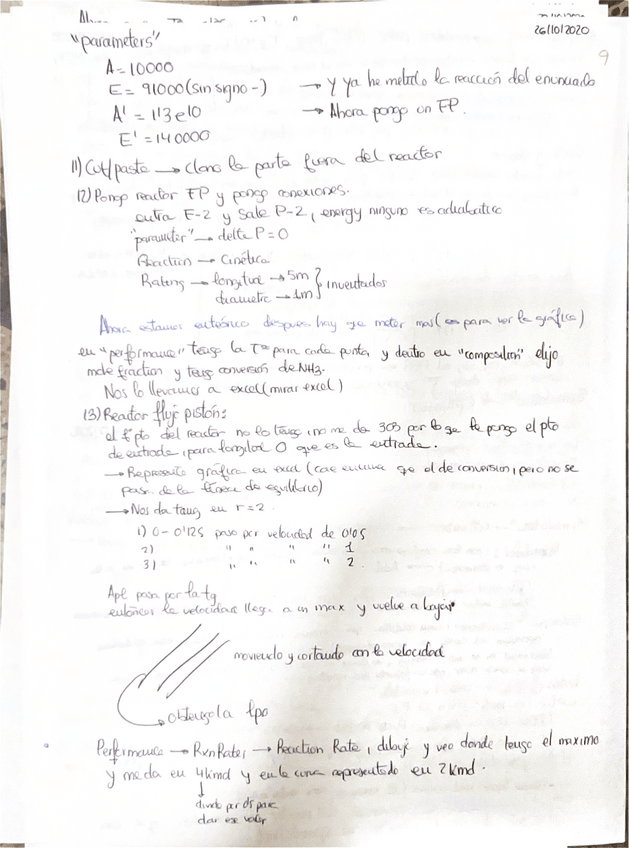 26/10/2020
9
"parameters"
A = 10000
E = 91000 (sin signo -) → y ya he metido la reacción del enunciado
A' = 1'3e10 → Ahora pongo un FP.
E' = 140000
11) Cut/paste → clono la parte fuera del reactor
12) Pongo reactor FP y pongo conexiones.
entra F-2 y sale P-2, energy ninguno es adiabático
"parameter" → delta P = 0
Reaction → Cinética
Rating → longitud → 5m
diametro → 1m } inventados
Ahora estamos después hay que meter mas (es para ver la gráfica)
en "performance" tengo la Tª para cada punto, y dentro en "composition" elijo
mole fraction y tengo conversión de NH3.
Nos lo llevamos a excel (mirar excel)
13) Reactor flujo pistón:
el pto del reactor no lo tengo, no me da 303 por lo que le pongo el pto
de entrada, para longitud 0 que es la entrada.
→ Represento gráfica en excel (cae encima que el de conversión, pero no se
pasa de la línea de equilibrio)
→ Nos da tang en r = 2.
1) 0 - 0'125 paso por velocidad de 0'05
2) " " " " 1
3) " " " " 2
pasa por la tg
entonces la velocidad llega a un max y vuelve a bajar
moviendo y cortando con la velocidad
obtengo la tpo
Performance → Rxn Rates → Reaction Rate, dibujé y veo donde tengo el maximo
y me da en 4 kmol y en la curva representado en 2 kmol.
divido por ds para
dar ese valor